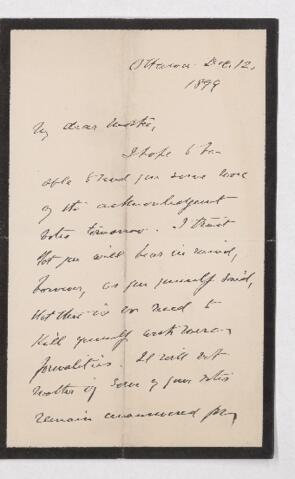 Ottawa Dec. 12.
1899
My dear
I hope to be
able to send you some more
of the acknowledgment
notes tomorrow. I trust
that you will bear in mind,
however, as you yourself said,
that there is no need to
kill yourself with
formalities. It will not
matter if some of your notes
remain unanswered for